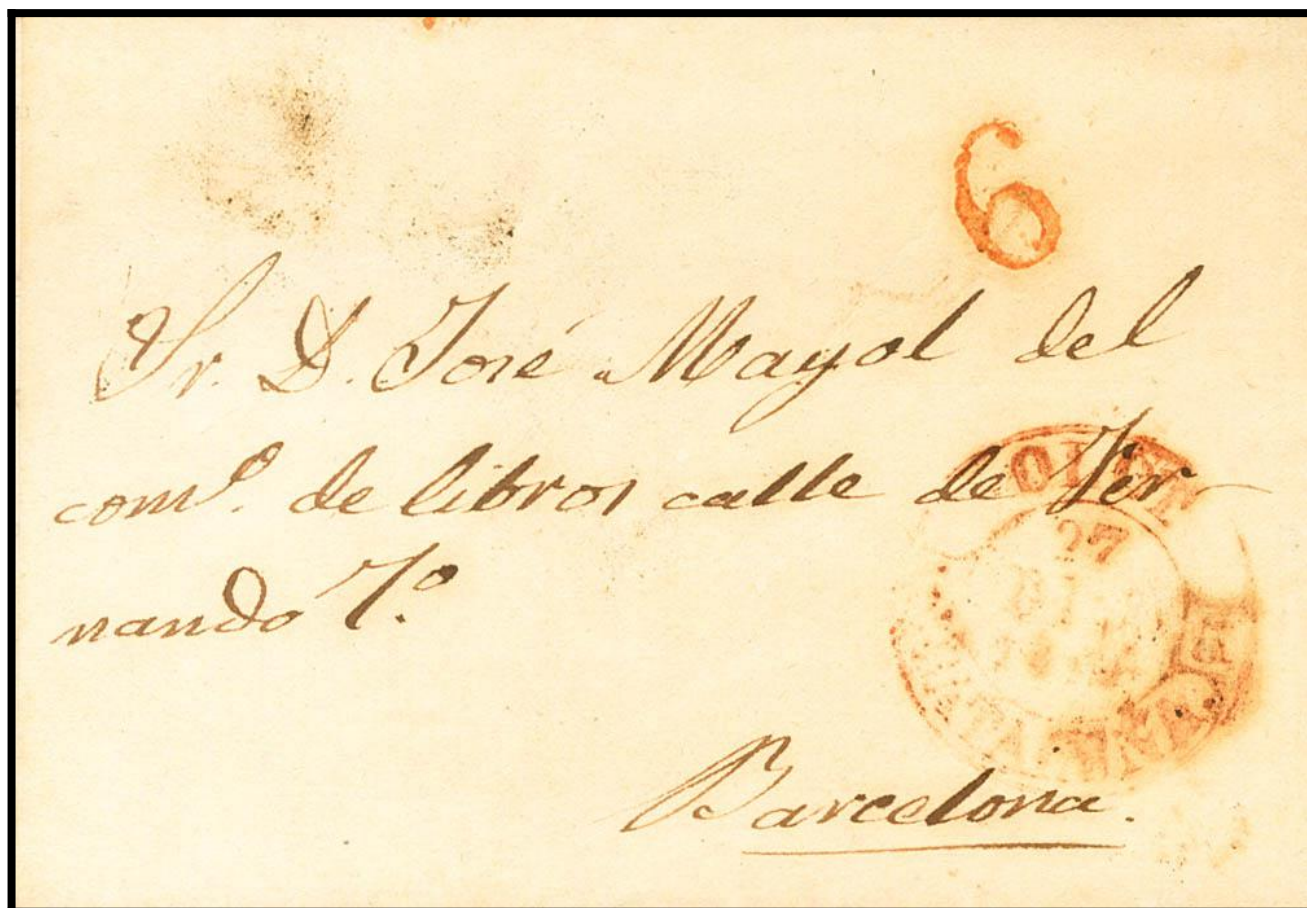 6
Sr. D. José Mayol del
com.º de libros calle de Fer
nando 7.º
Barcelona.
27
CATALUÑA